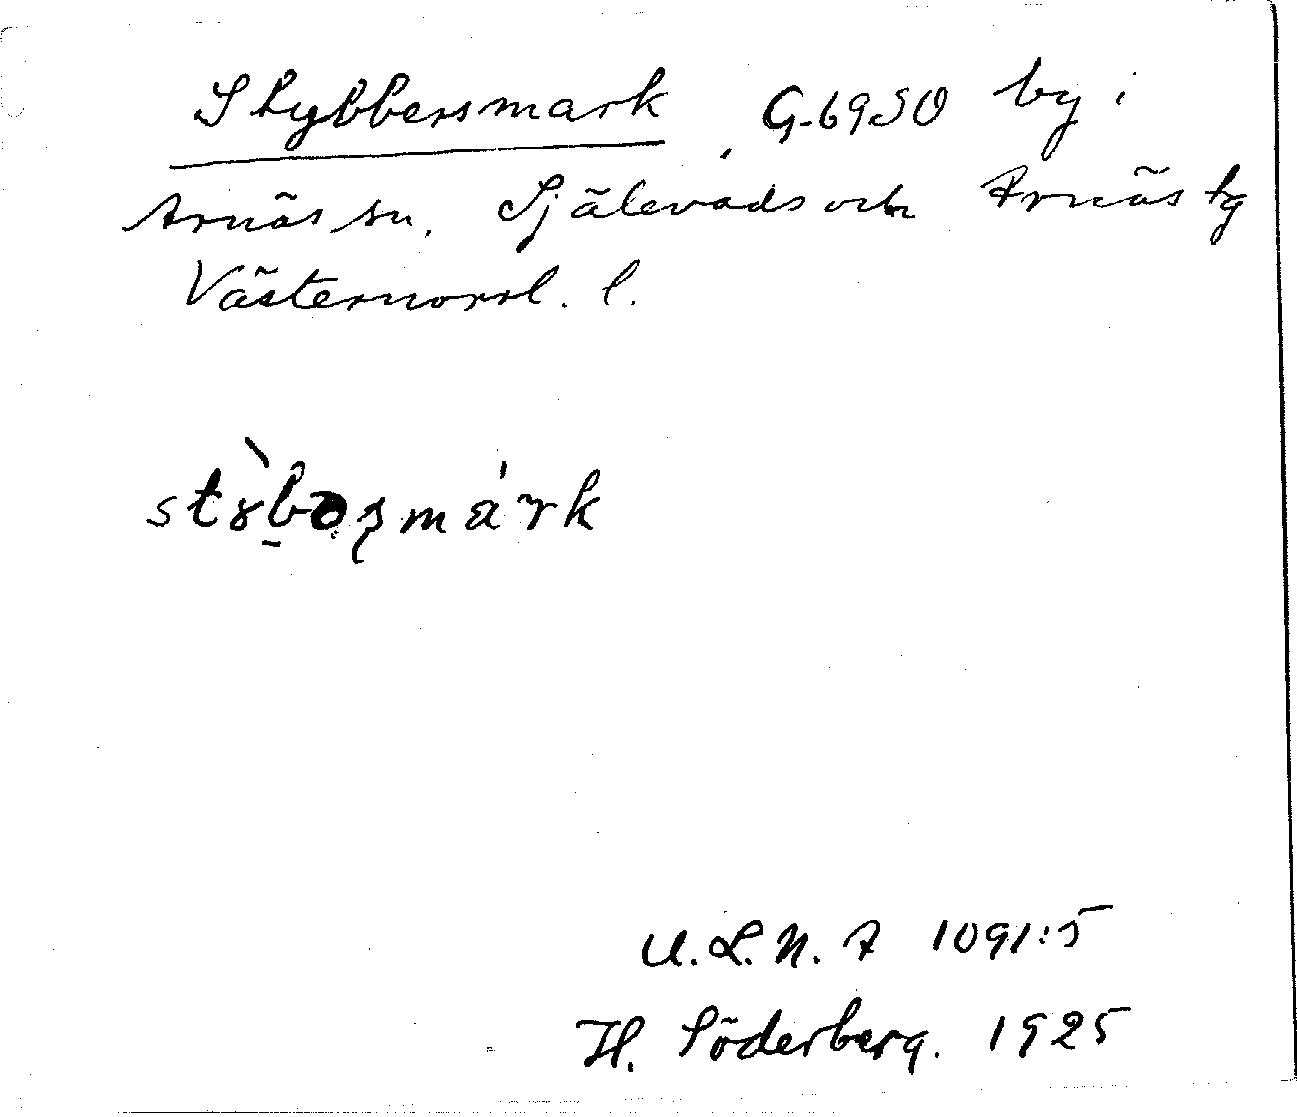 Stybbersmark, G-6950 by i
Arnäs sn, Själevads och Arnäs tg
Västernorrl. l.
U.L.M. A 1091:5
H. Söderberg. 1925